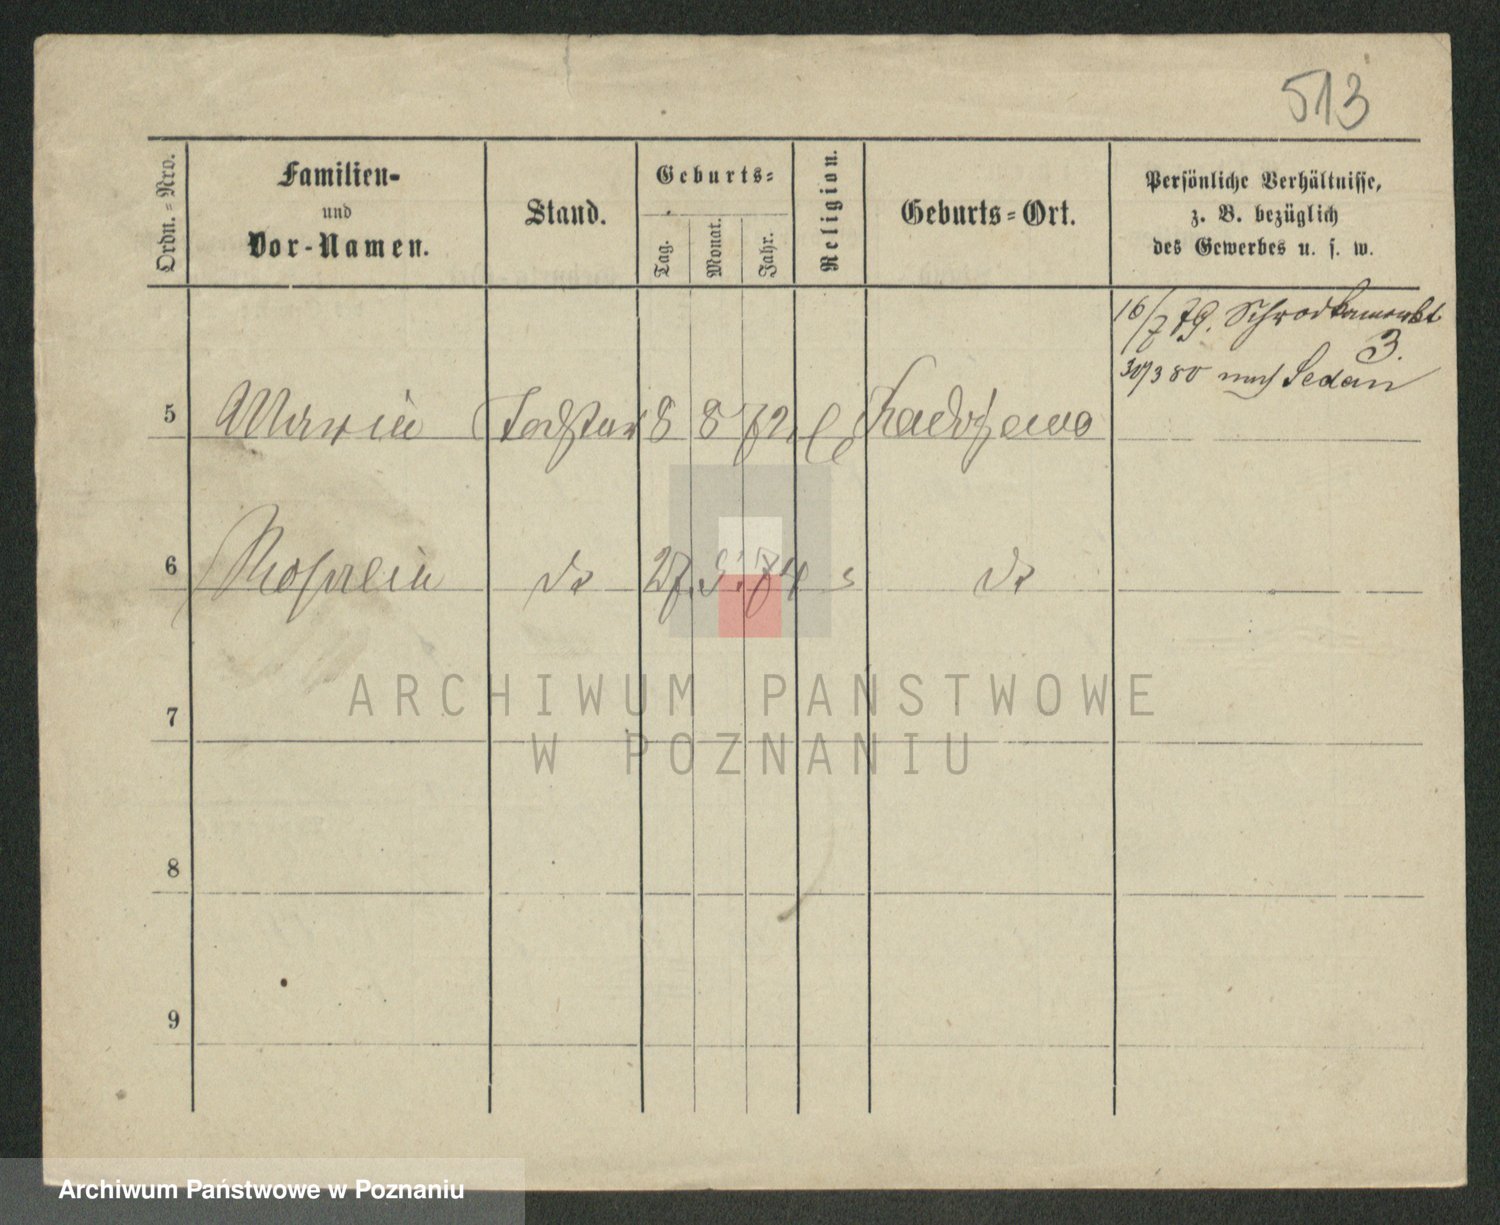 513
Ordn.=Nro.
Familien-
und
Vor-Namen.
Stand.
Geburts=
Tag.
Monat.
Jahr.
Religion.
Geburts=Ort.
Persönliche Verhältnisse,
z. B. bezüglich
des Gewerbes u. s. w.
16/7 79. Schrodkamarkt
3.
30/3 80 nach Sedan
5 Marie Tochter 8 8 72
6 Rosalie do 27. 74 do
ARCHIWUM PAŃSTWOWE
W POZNANIU
7
8
9
Archiwum Państwowe w Poznaniu